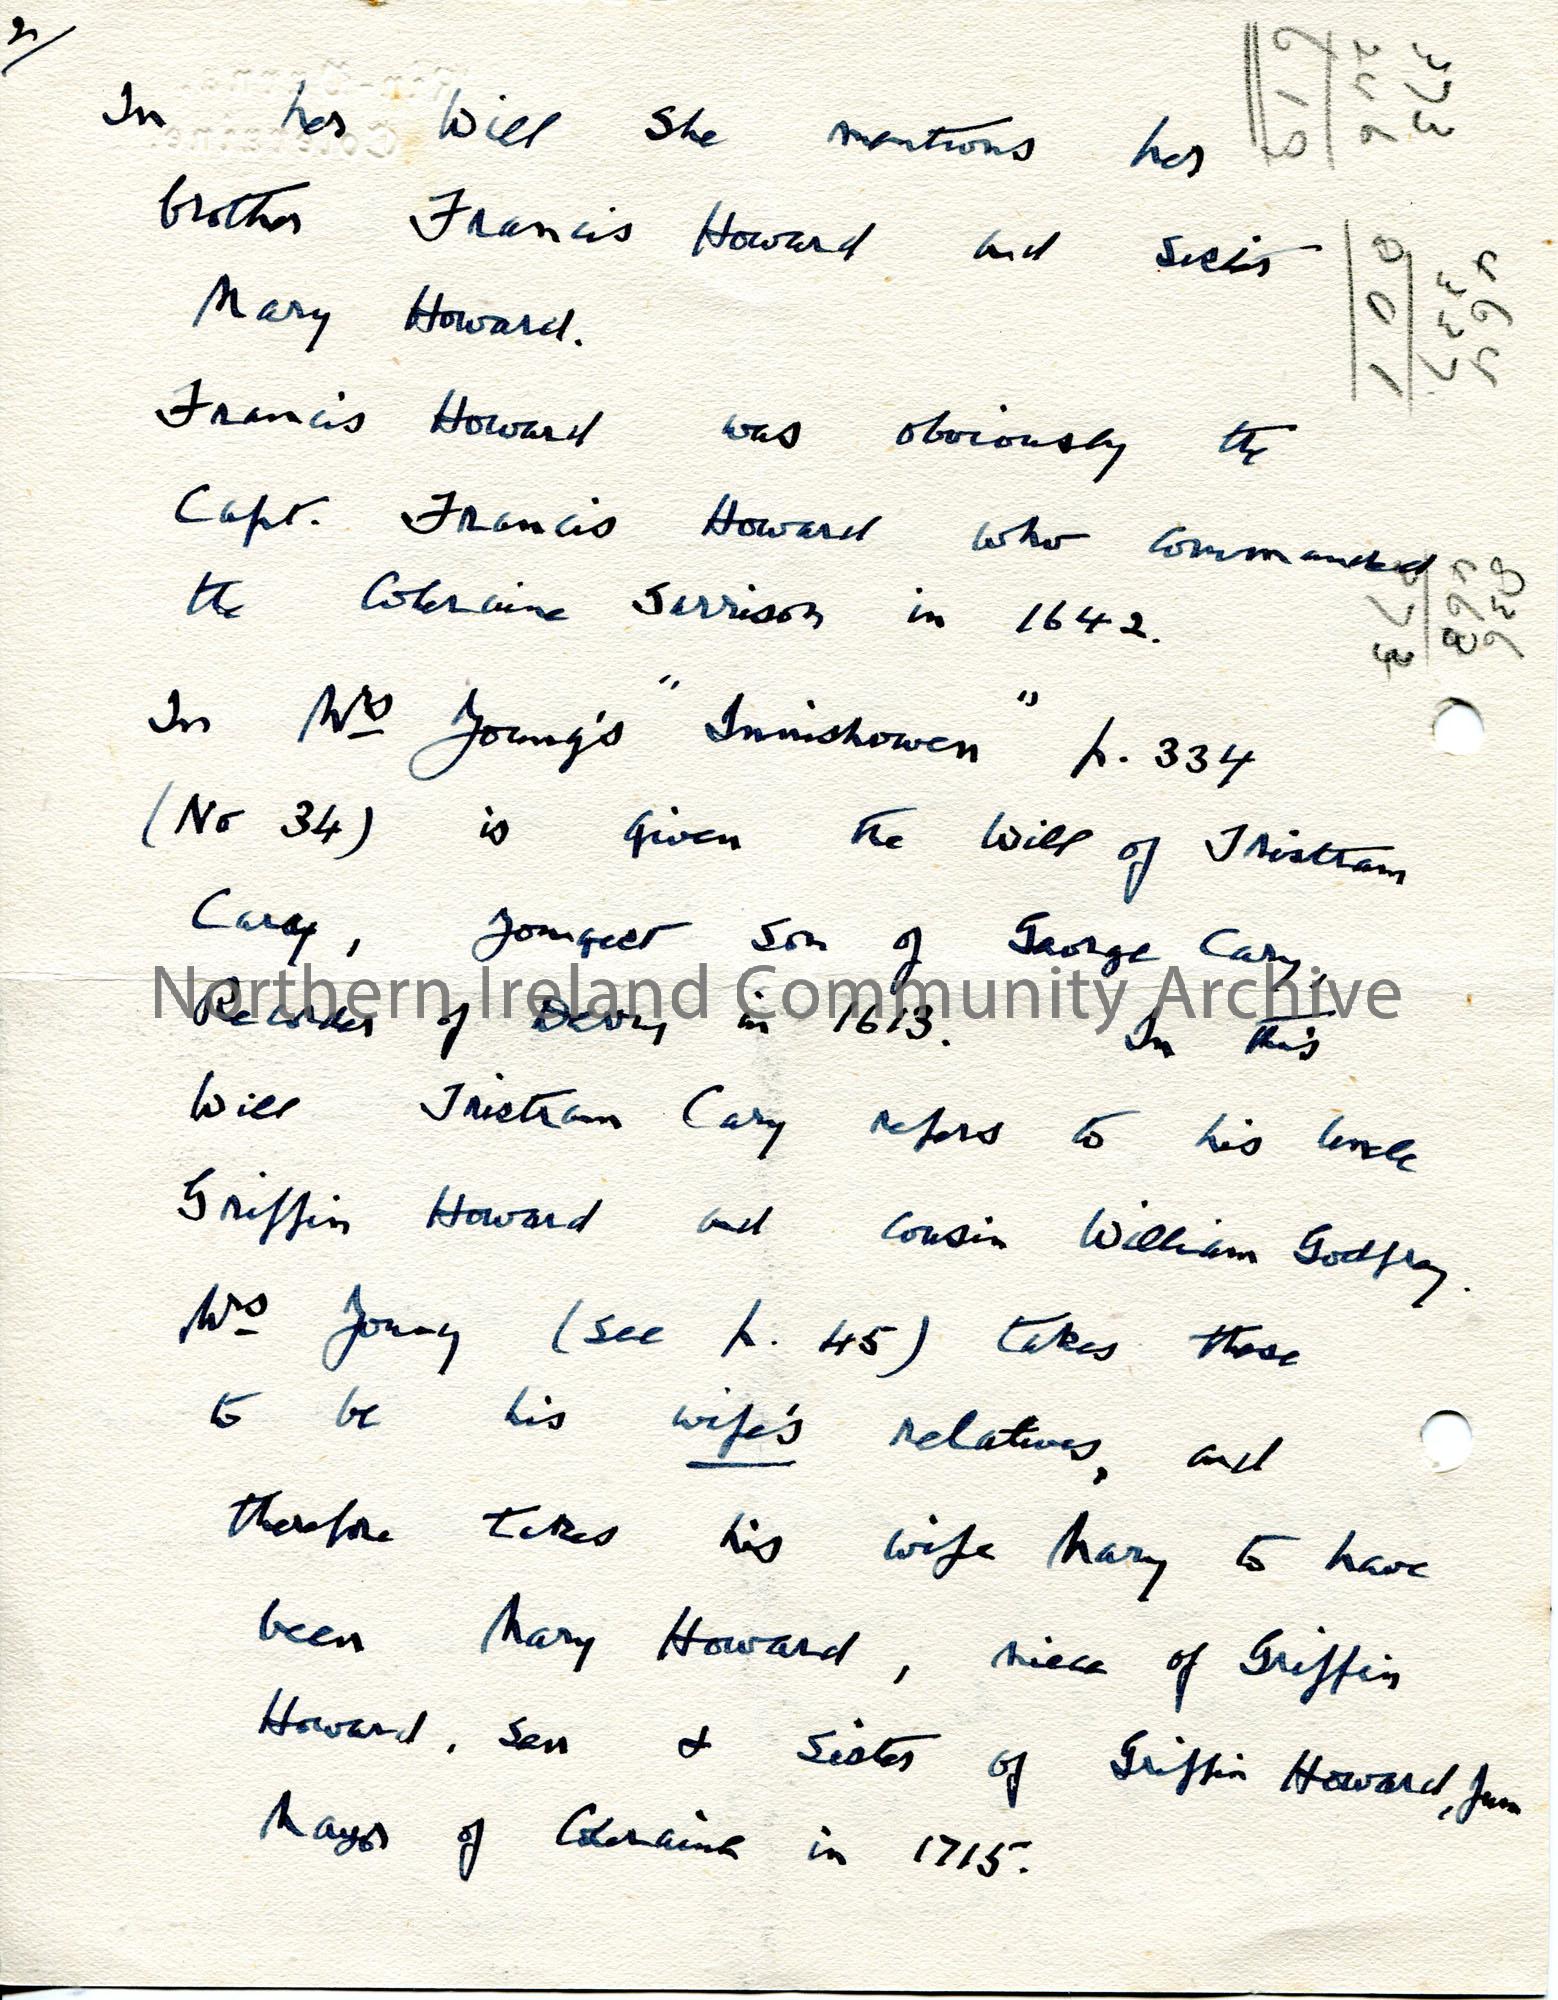 2/
In her Will she mentions her
brother Francis Howard and sister
Mary Howard.
Francis Howard was obviously the
Capt. Francis Howard who commanded
the Coleraine Garrison in 1642.
In Mrs Young's "Innishowen" p. 334
(No 34) is given the Will of Tristram
Cary, youngest son of George Cary,
Recorder of Derry in 1613. In this
Will Tristram Cary refers to his Uncle
Griffin Howard and cousin William Godfrey.
Mrs Young (see p. 45) takes these
to be his wife's relatives, and
therefore takes his wife Mary to have
been Mary Howard, niece of Griffin
Howard, Sen & Sister of Griffin Howard, Jun
Mayor of Coleraine in 1715.
Northern Ireland Community Archive
373
246
619
100